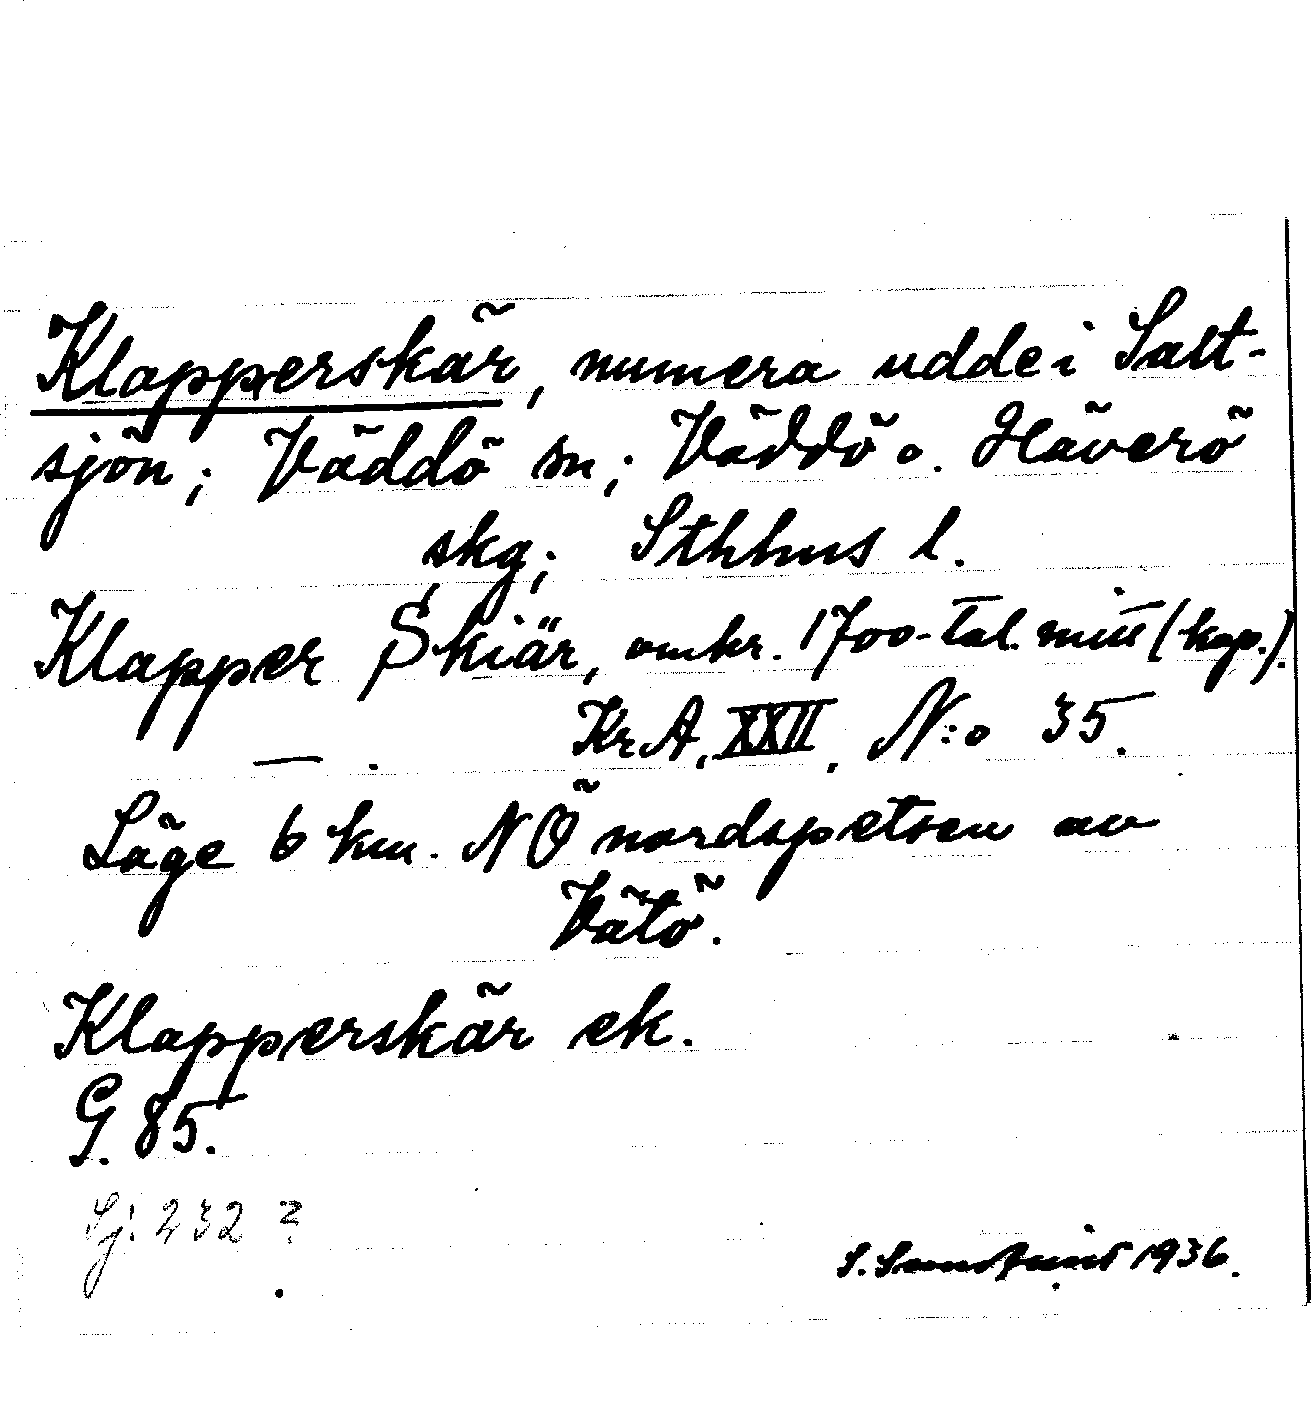 Klapperskär, numera udde i Salt-
sjön; Väddö sn; Väddö o. Häverö
skg; Sthhus l.
Klapper Skiär, omkr. 1700-tal. mitt (kop.).
KrA, XXII, N:o 35.
Läge 6 km. NÖ nordspetsen av
Vätö.
Klapperskär ek.
G. 85.
Sj. 232 ?
S. 1936.